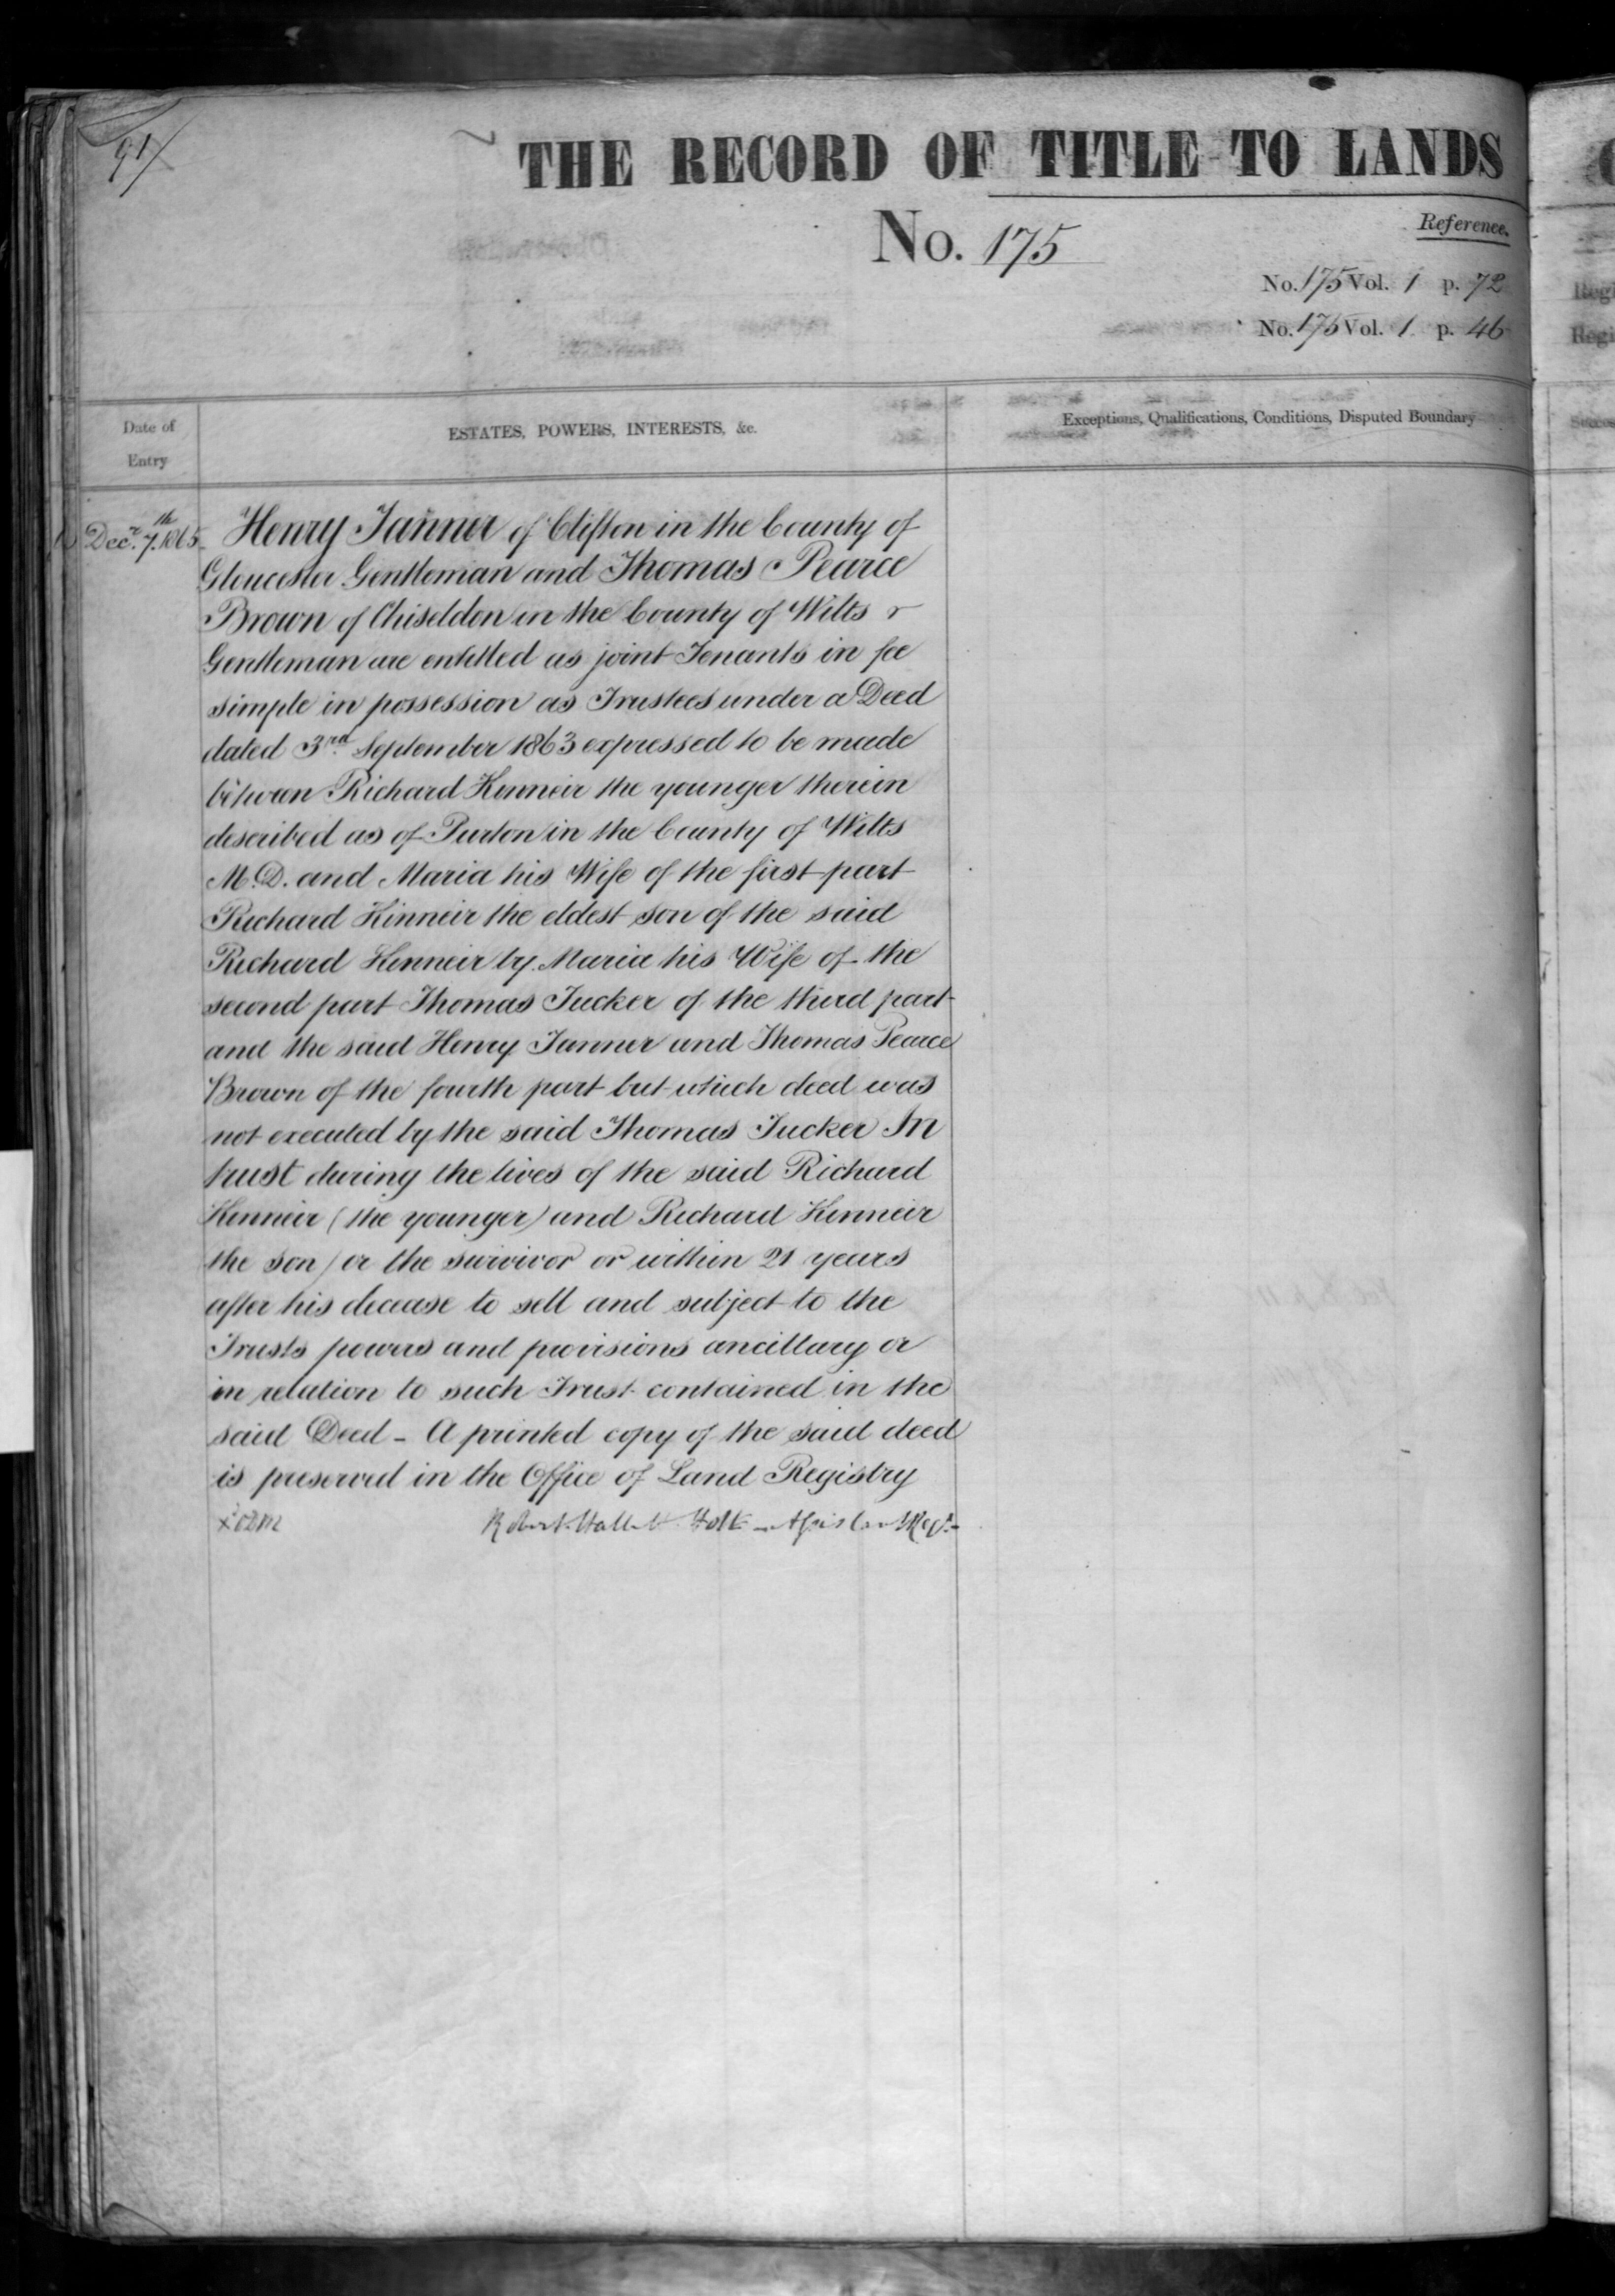 91
THE RECORD OF TITLE TO LANDS
No. 175
Reference.
No. 175 Vol. 1 p. 72
No. 175 Vol. 1 p. 46
Date of
Entry
ESTATES, POWERS, INTERESTS, &c.
Exceptions, Qualifications, Conditions, Disputed Boundary
Decr. 7th. 1865
Henry Tanner of Clifton in the County of
Gloucester Gentleman and Thomas Pearce
Brown of Chiseldon in the County of Wilts
Gentleman are entitled as joint Tenants in fee
simple in possession as Trustees under a Deed
dated 3rd September 1863 expressed to be made
between Richard Kinneir the younger therein
described as of Purton in the County of Wilts
M.D. and Maria his Wife of the first part
Richard Kinneir the eldest son of the said
Richard Kinneir by Maria his Wife of the
second part Thomas Tucker of the third part
and the said Henry Tanner and Thomas Pearce
Brown of the fourth part but which deed was
not executed by the said Thomas Tucker In
trust during the lives of the said Richard
Kinneir (the younger) and Richard Kinneir
the son) or the survivor or within 21 years
after his decease to sell and subject to the
Trusts powers and provisions ancillary or
in relation to such Trust contained in the
said Deed - A printed copy of the said deed
is preserved in the Office of Land Registry
Robert Hallett Holt Assistant Regr.